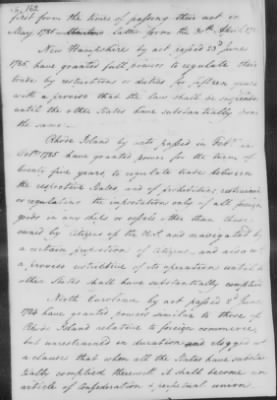 first from the times of passing their act in
May 1785 latter from the 30th April 17
New Hampshire by act passed 23d June
1785 have granted full powers to regulate their
trade by restrictions or duties for fifteen years
with a proviso that the law shall be suspended
until the other States have substantially done
the same.
Rhode Island by acts passed in Feby. &
Octr. 1785 have granted power for the term of
twenty five years, to regulate trade between
the respective States, and of prohibiting, restraining
or regulating the importation only of all foreign
goods in any ships or vessels other than those
owned by citizens of the U.S. and navigated by
a certain proportion of citizens, and also with
a proviso restrictive of its operation until the
other States shall have substantially complied
North Carolina by act passed 2d June
1784 have granted powers similar to those of
Rhode Island relative to foreign commerce,
but unrestrained in duration and clogged with
a clause that when all the States have substan
tially complied therewith it shall become an
article of Confederation & perpetual union.